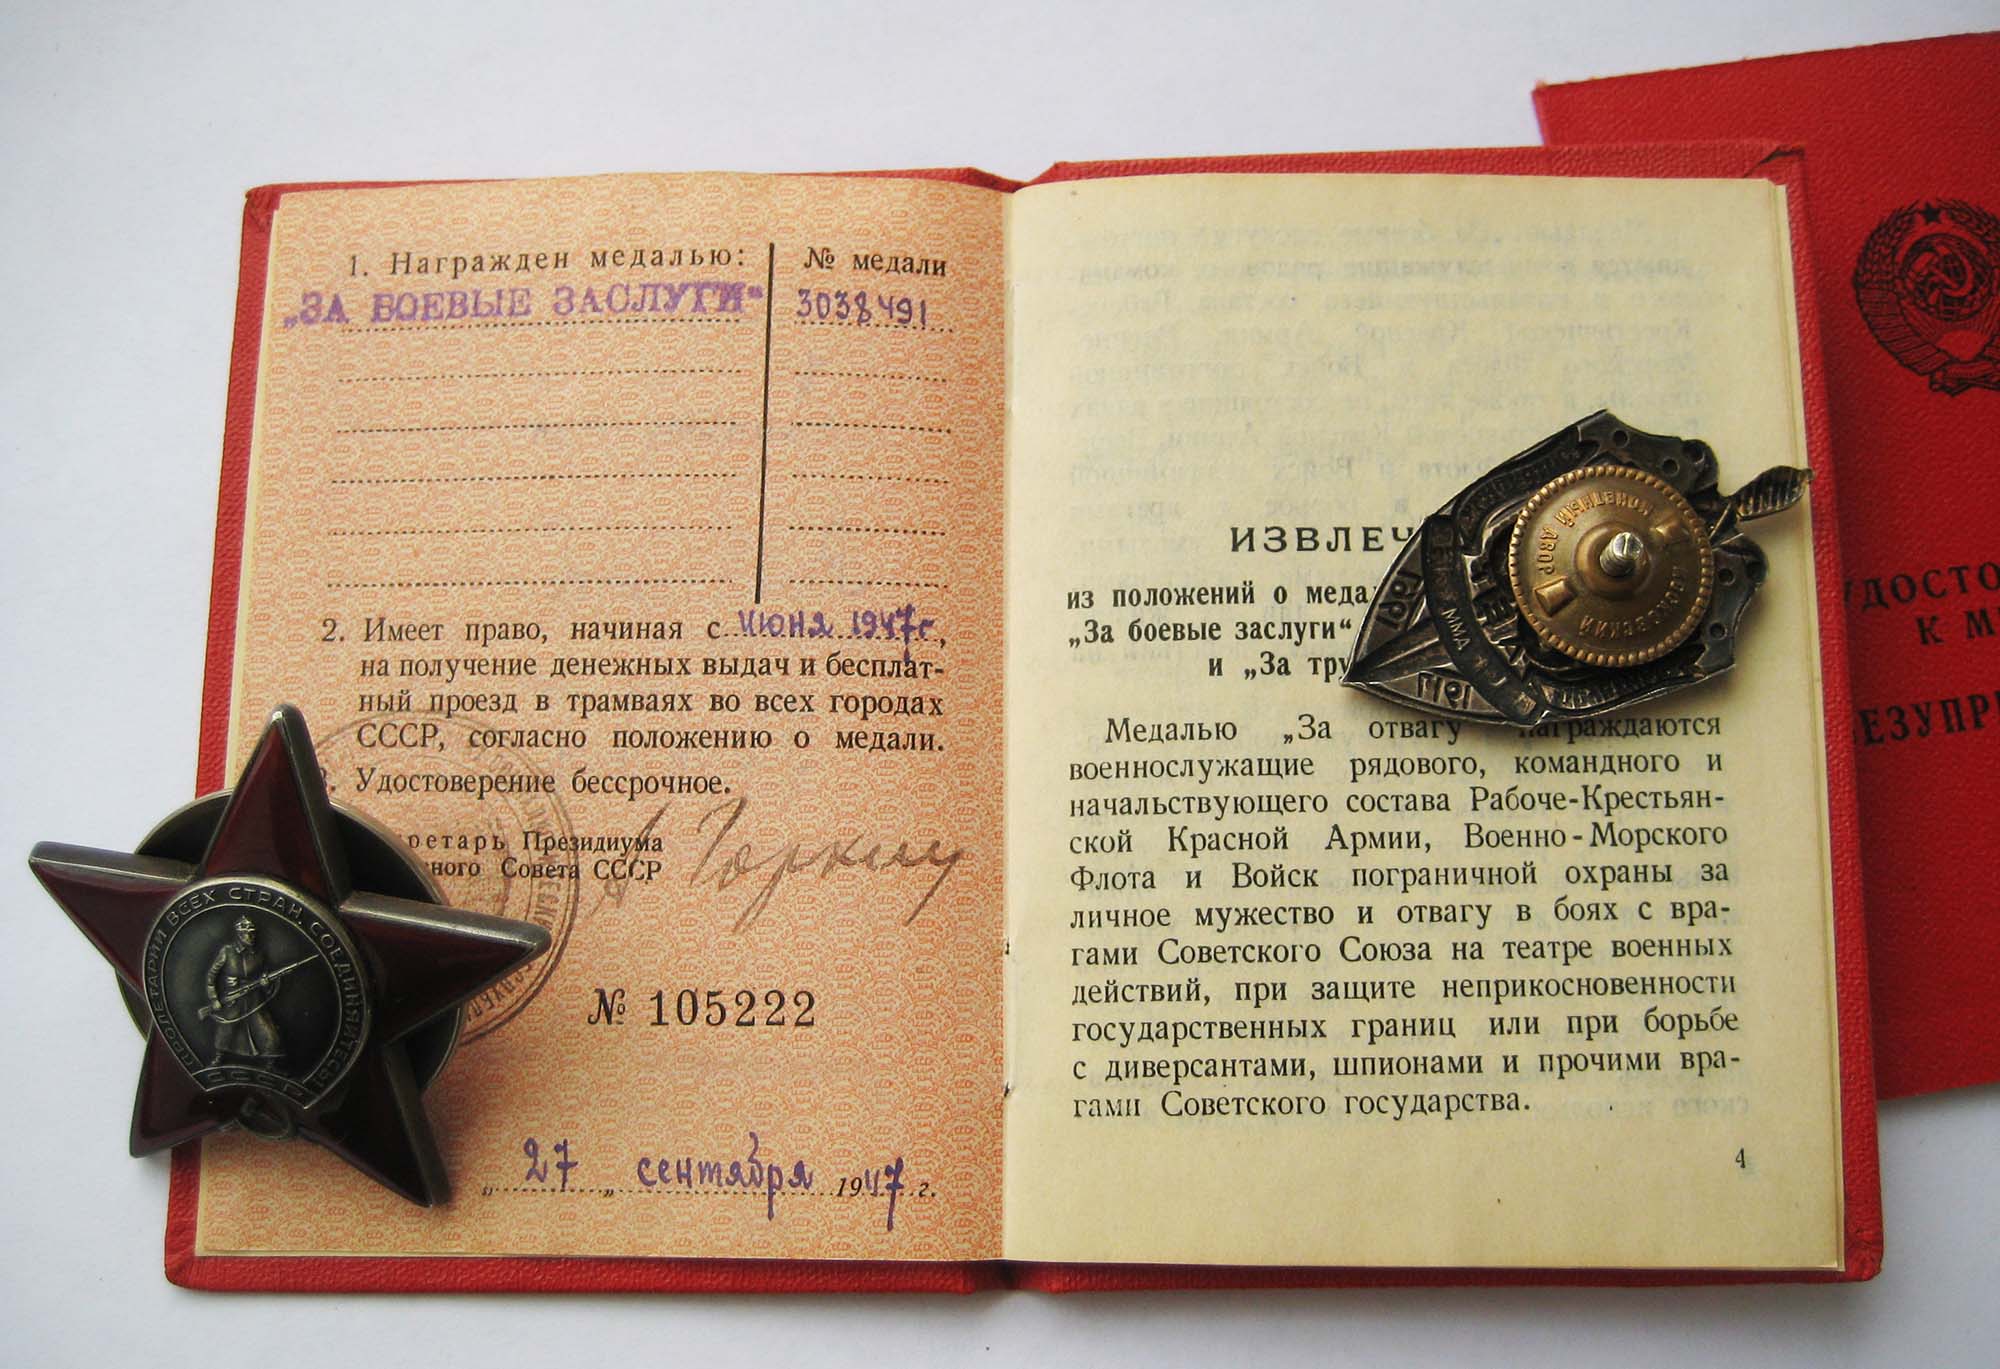 1. Награжден медалью:
№ медали
„ЗА БОЕВЫЕ ЗАСЛУГИ“
3038491
2. Имеет право, начиная с июня 1947г,
на получение денежных выдач и бесплат-
ный проезд в трамваях во всех городах
СССР, согласно положению о медали.
Удостоверение бессрочное.
Президиума
Совета СССР
Горкин
№ 105222
„27„ сентября 1947 г.
ПРОЛЕТАРИИ ВСЕХ СТРАН, СОЕДИНЯЙТЕСЬ!
СССР
ИЗВЛЕЧ
из положений о меда
„За боевые заслуги“
и „За тру
Медалью „За отвагу награждаются
военнослужащие рядового, командного и
начальствующего состава Рабоче-Крестьян-
ской Красной Армии, Военно-Морского
Флота и Войск пограничной охраны за
личное мужество и отвагу в боях с вра-
гами Советского Союза на театре военных
действий, при защите неприкосновенности
государственных границ или при борьбе
с диверсантами, шпионами и прочими вра-
гами Советского государства.
4
МОСКОВСКИЙ
МОНЕТНЫЙ ДВОР
УДОСТО
К М
БЕЗУПР